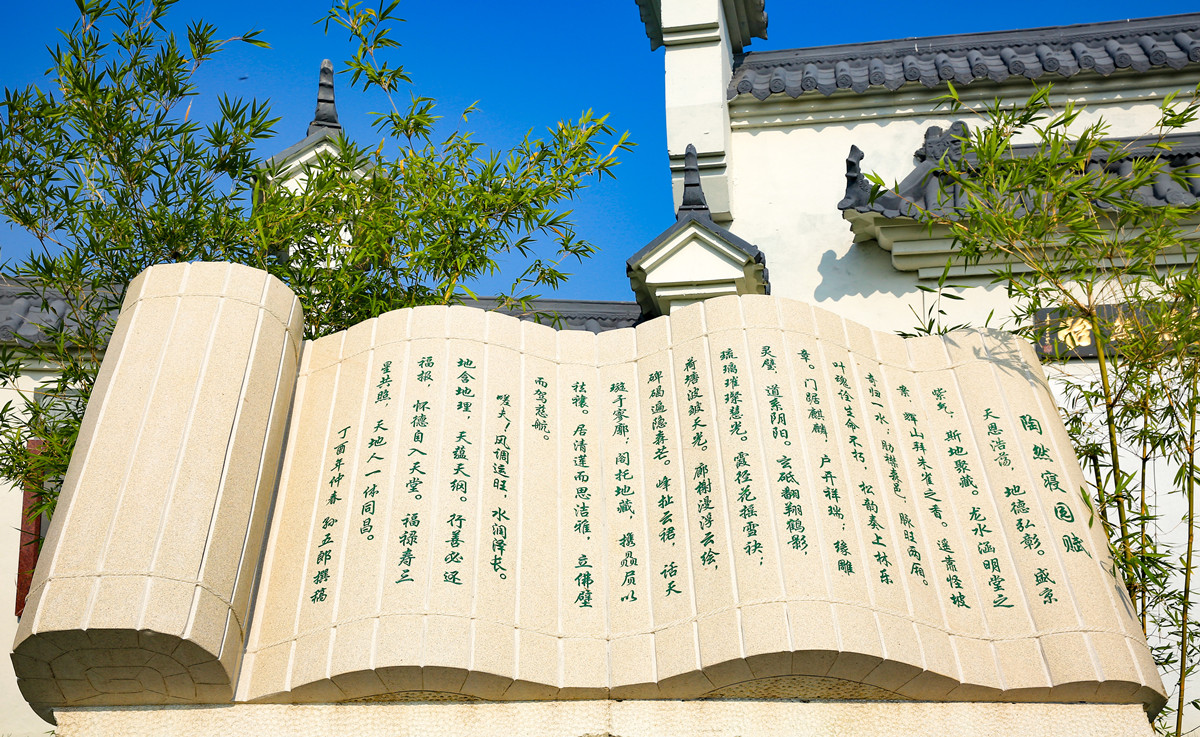 陶然寝园赋
天恩浩荡，地德弘彰。盛京
紫气，斯地聚藏。龙水涵明堂之
紫，辉山拜朱雀之香。遥肃怪坡
奇归一水；肋襟叠邑，脉旺两厢。
叶魂诠生命不朽，松韵奏上林乐
章。门踞麒麟，户开祥瑞；缘雕
灵璧，道系阴阳。玄砥翻翔鹤影，
琉璃璀璨慧光。霞径花摇雪袂；
荷塘波皱天光。廊榭漫浮云绘，
碑碣遍隐森芒。峰扯云裙，话天
璇于寥廓；阁托地藏，携贝质以
祛禳。居清莲而思洁雅，立佛壁
而驾慈航。
嗟夫！风调运旺，水润泽长。
地含地理，天蕴天纲。行善必还
福报，怀德自入天堂。福禄寿三
星共照，天地人一体同昌。
丁酉年仲春 孙五郎撰稿